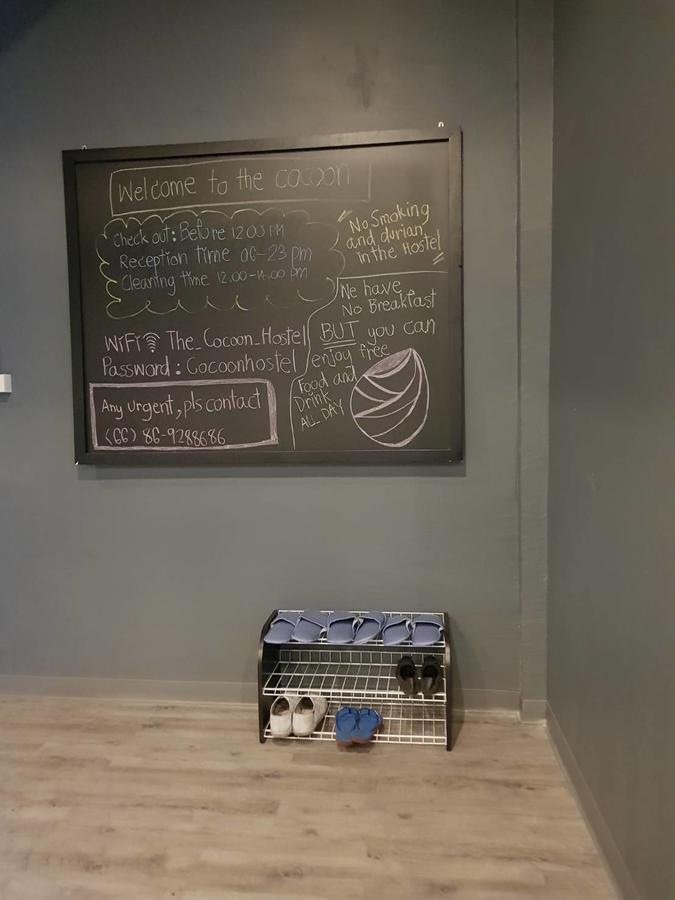 Welcome to the cocoon
Check out: Before 12.00 PM
Reception time 06-23 pm
Cleaning time 12.00-14.00 pm
WiFi The_Cocoon_Hostel
Password: Cocoonhostel
Any urgent, pls contact
(66) 86-9288686
No Smoking
and durian
in the Hostel
We have
No Breakfast
BUT you can
enjoy free
Food and
Drink
ALL DAY